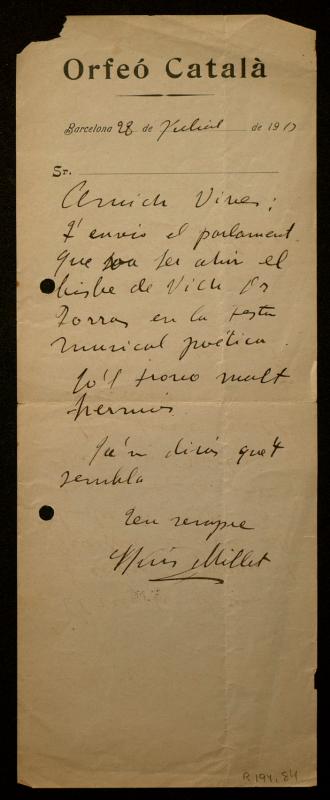 Orfeó Català
Barcelona 28 de Juliol de 191
Sr.
Amich Vives:
T'envio el parlament
que va fer ahir el
bisbe de Vich Dr
Torras en la festa
musical poética.
Jo'l trovo molt
hermós.
Ja'm dirás que't
sembla
Teu sempre
Lluís Millet
R.194,84